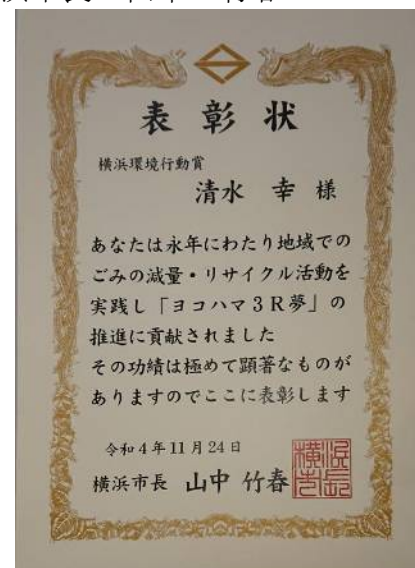 表彰状
横浜環境行動賞
清水 幸 様
あなたは永年にわたり地域での
ごみの減量・リサイクル活動を
実践し「ヨコハマ3R夢」の
推進に貢献されました
その功績は極めて顕著なものが
ありますのでここに表彰します
令和4年11月24日
横浜市長 山中 竹春